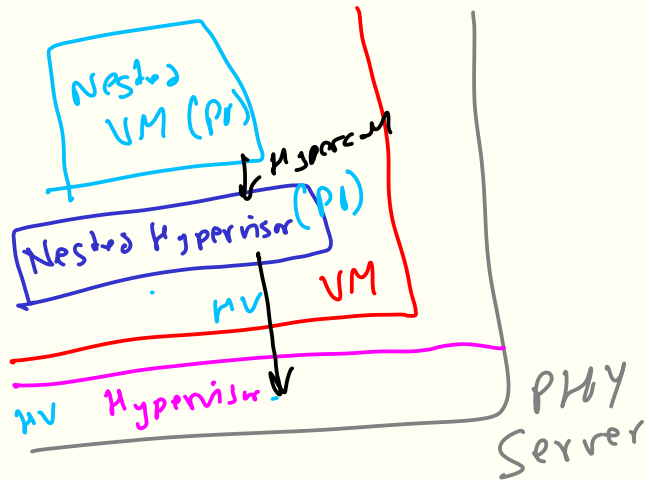 Nested
VM (PV)
Hypercall
Nested Hypervisor (PV)
HV
VM
HV
Hypervisor
PHY
Server